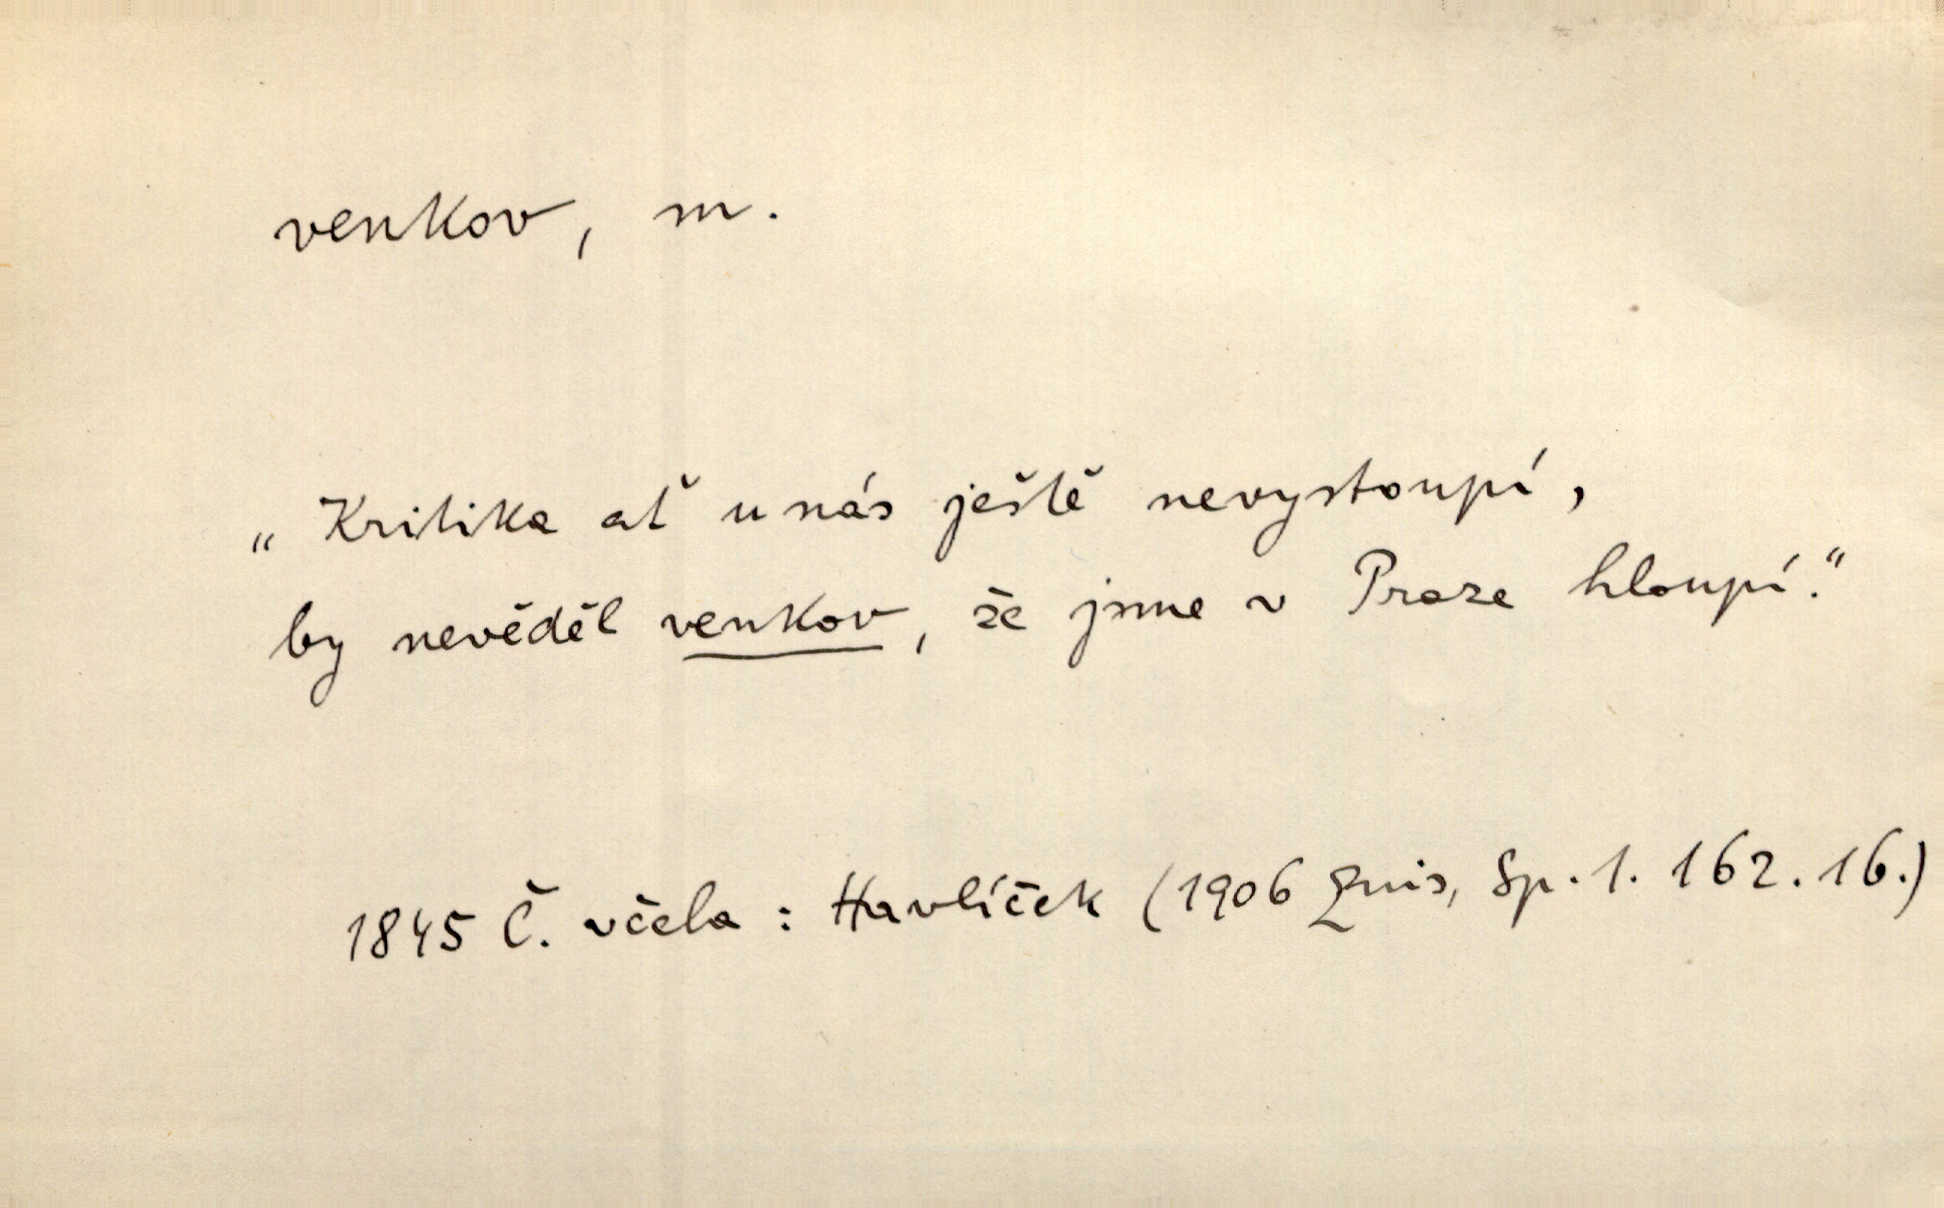 venkov, m.
„Kritika ať u nás ještě nevystoupí,
by nevěděl venkov, že jsme v Praze hloupí.“
1845 Č. včela : Havlíček (1906 Quis, Sp. 1. 162. 16.)